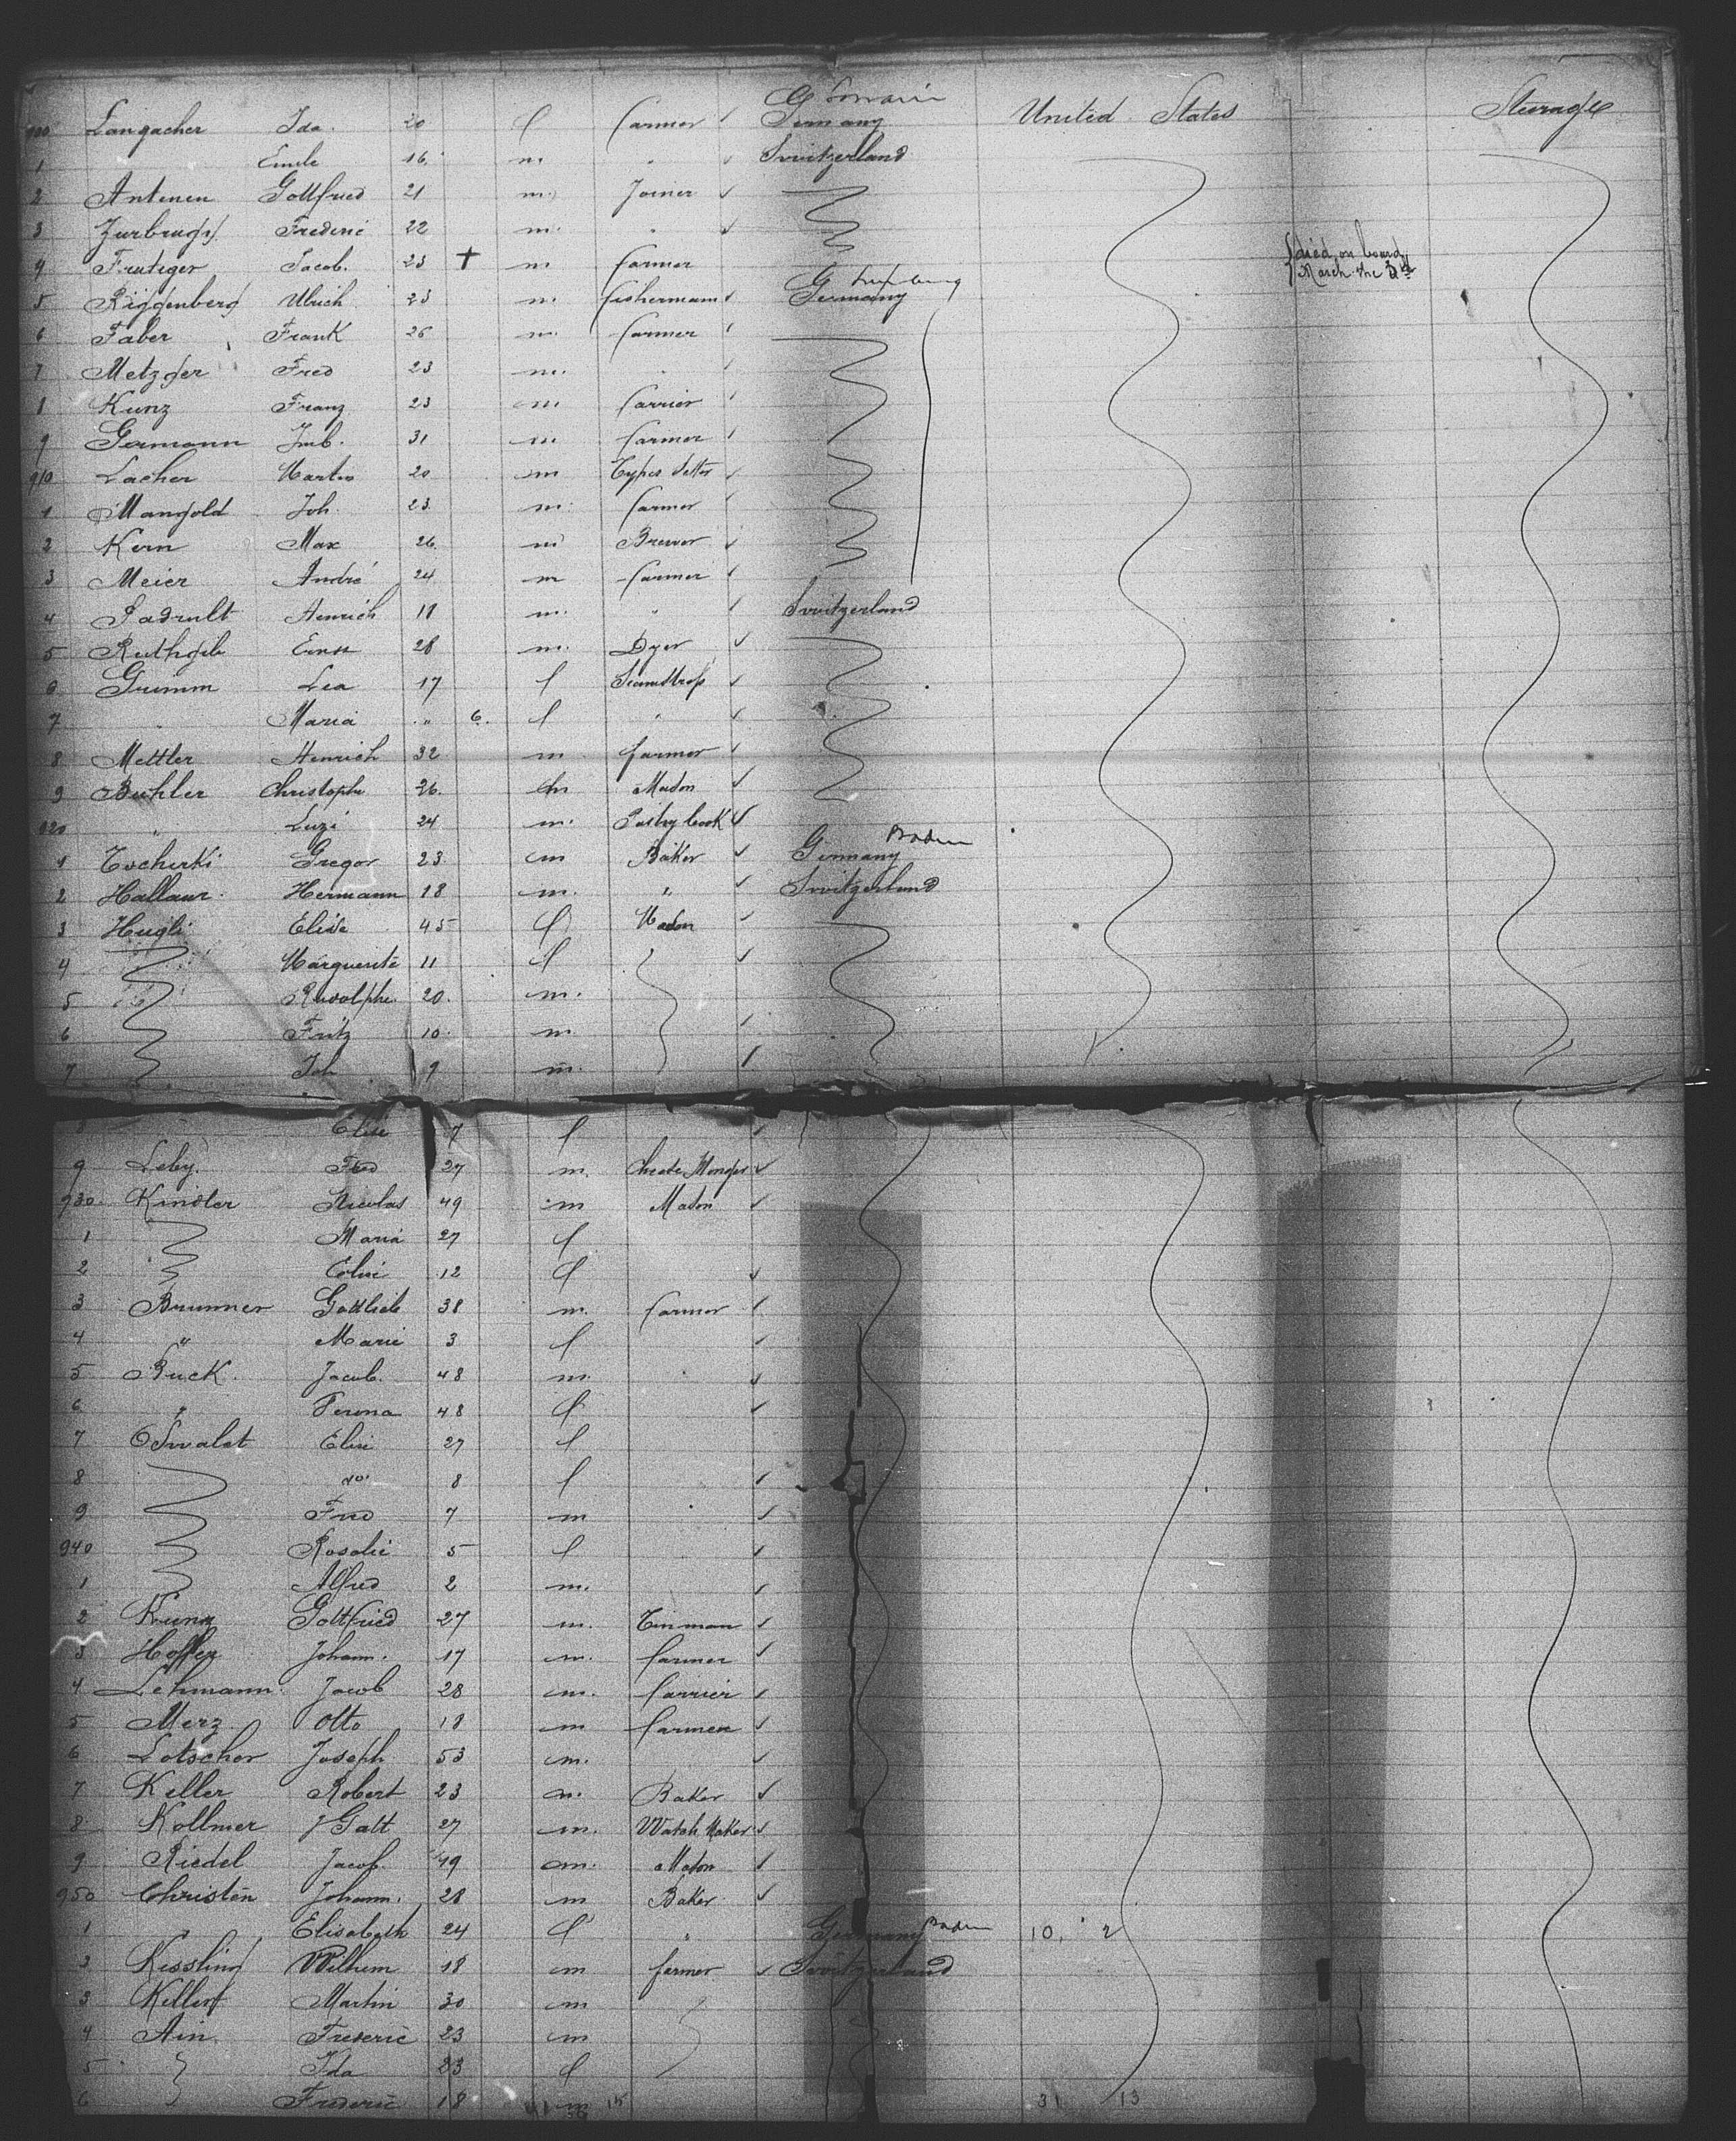 900 Langacher Ida. 20 f farmer Germany G Lorrain United States Steerage
1 Emile 16 m " Switzerland
2 Antenen Gottfried 21 m Joiner
3 Zurbrugg Frederic 22 m "
4 Frutiger Jacob. 23 + m farmer died on board March the
5 Riggenberg Ulrich 23 m fishermann Germany G Luxburg
6 Faber Frank 26 m farmer
7 Metzger Fred 23 m. "
8 Kunz Franz 23 m Carrier
9 Germann Jmb. 31 m farmer
910 Lacher Martin 20 m Types Setter
1 Mangold Joh. 23 m farmer
2 Kern Max 26 m Brewer
3 Meier André 24 m farmer
4 Padrult Henrich 18 m. " Switzerland
5 Ruthgib Ernst 28 m. Dyer
6 Grumm Lea 17 f Seamstress
7 " Maria " 6. f "
8 Mettler Henrich 32 m farmer
9 Buhler Christophe 26. m Mason
920 " Luzi 24 m. Pastry Cook
1 Tscherki Gregor 23 m Baker Germany Baden
2 Hallaur Hermann 18 m. " Switzerland
3 Hugli Elise 45 f Mason
4 Marguerite 11 f
5 Rudolphe 20. m.
6 Fritz 10 m.
7 Joh 9 m.
8 Elise 7 f
9 Leby. Fred 27 m. Monger
930 Kindler Nicolas 49 m Mason
1 Maria 27 f
2 12 f
3 Brunner Gottlieb 38 m. farmer
4 " Marie 3 f
5 Buck. Jacob. 48 m.
6 " Verena 48 f
7 Oswalet Elise 27 f
8 do 8 f
9 Fred 7 m
940 Rosalie 5 f
1 Alfred 2 m.
2 Kung Gottfried 27 m. Tinman
3 Hoffer Johann. 17 m. farmer
4 Lehmann Jacob 28 m. Carrier
5 Merz Otto 18 m farmer
6 Lotscher Joseph 53 m.
7 Keller Robert 23 m. Baker
8 Kollmer J Gatt 27 m. Watch Maker
9 Riedel Jacob. 49 m. Mason
950 Christen Johann. 28 m Baker
1 " Elisabeth 24 f " Germany Baden 10, 2
2 Kissling Wilhem 18 m farmer Switzerland
3 Martin 30 m
4 Ain Frederic 23 m
5 Ida 23 f
6 Frederic 18 m 15 31 13